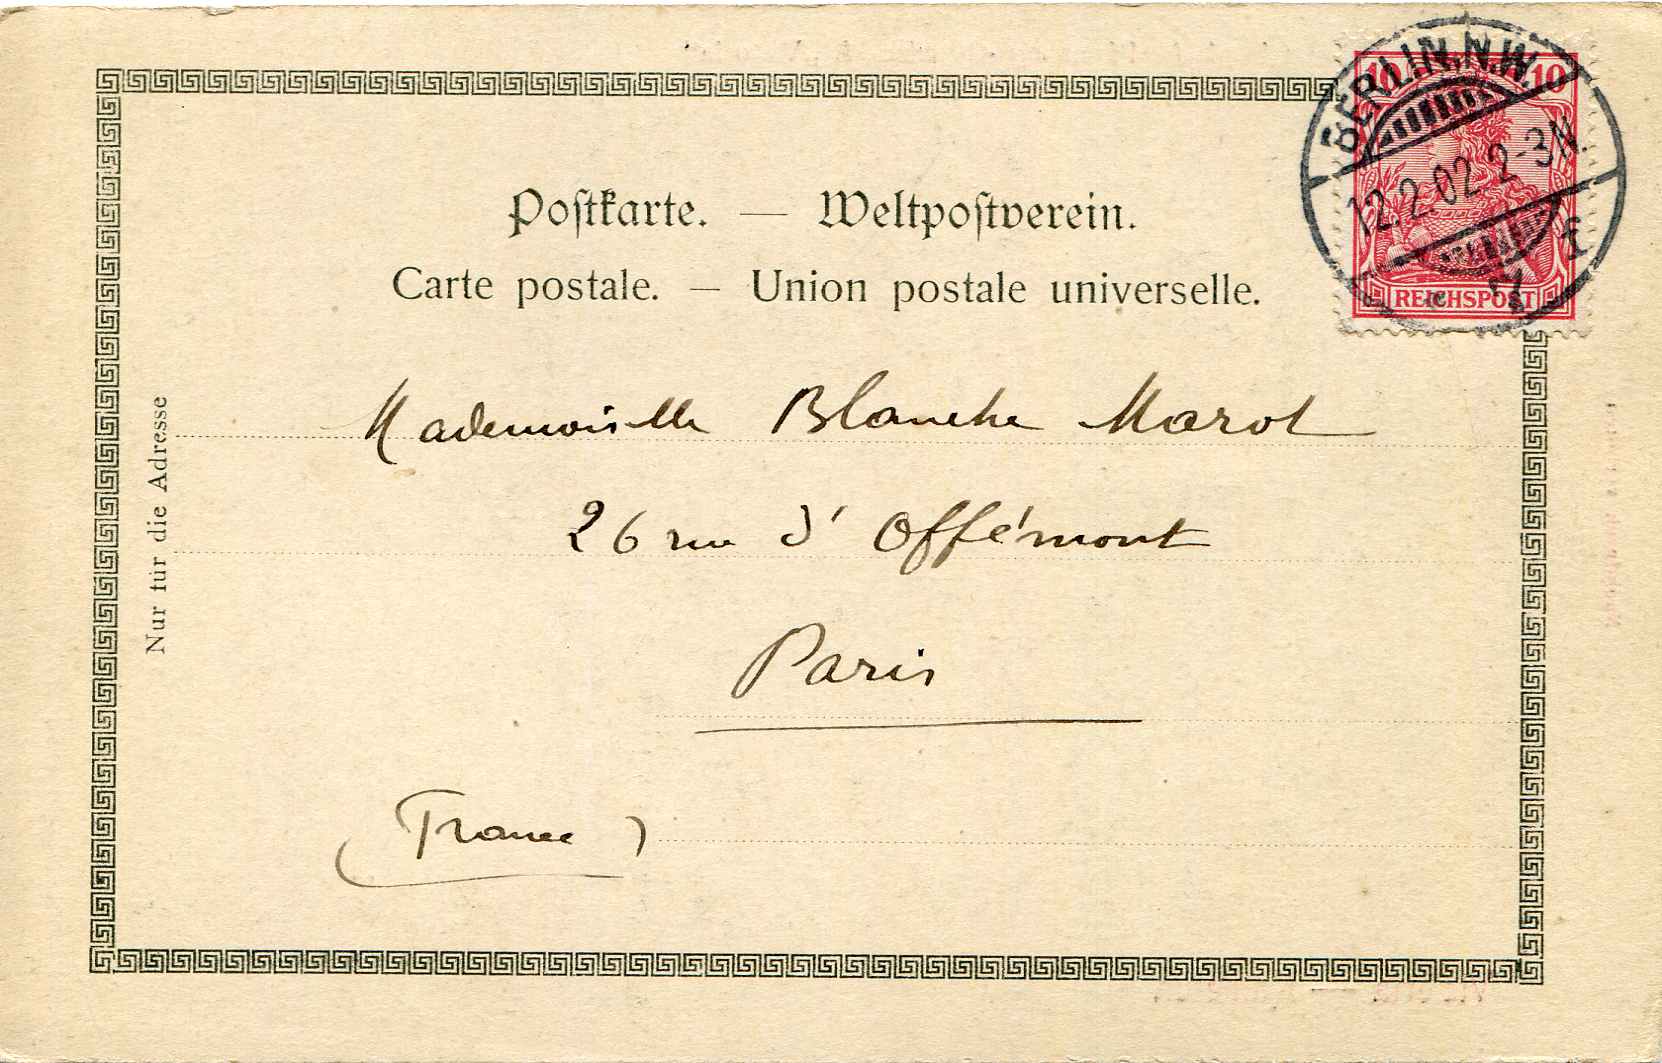 Postkarte. — Weltpostverein.
Carte postale. — Union postale universelle.
BERLIN.N.W.
12.2.02.2-3N.
10 10
REICHSPOST
Nur für die Adresse
Mademoiselle Blanche Marot
26 rue d'Offémont
Paris
(France)